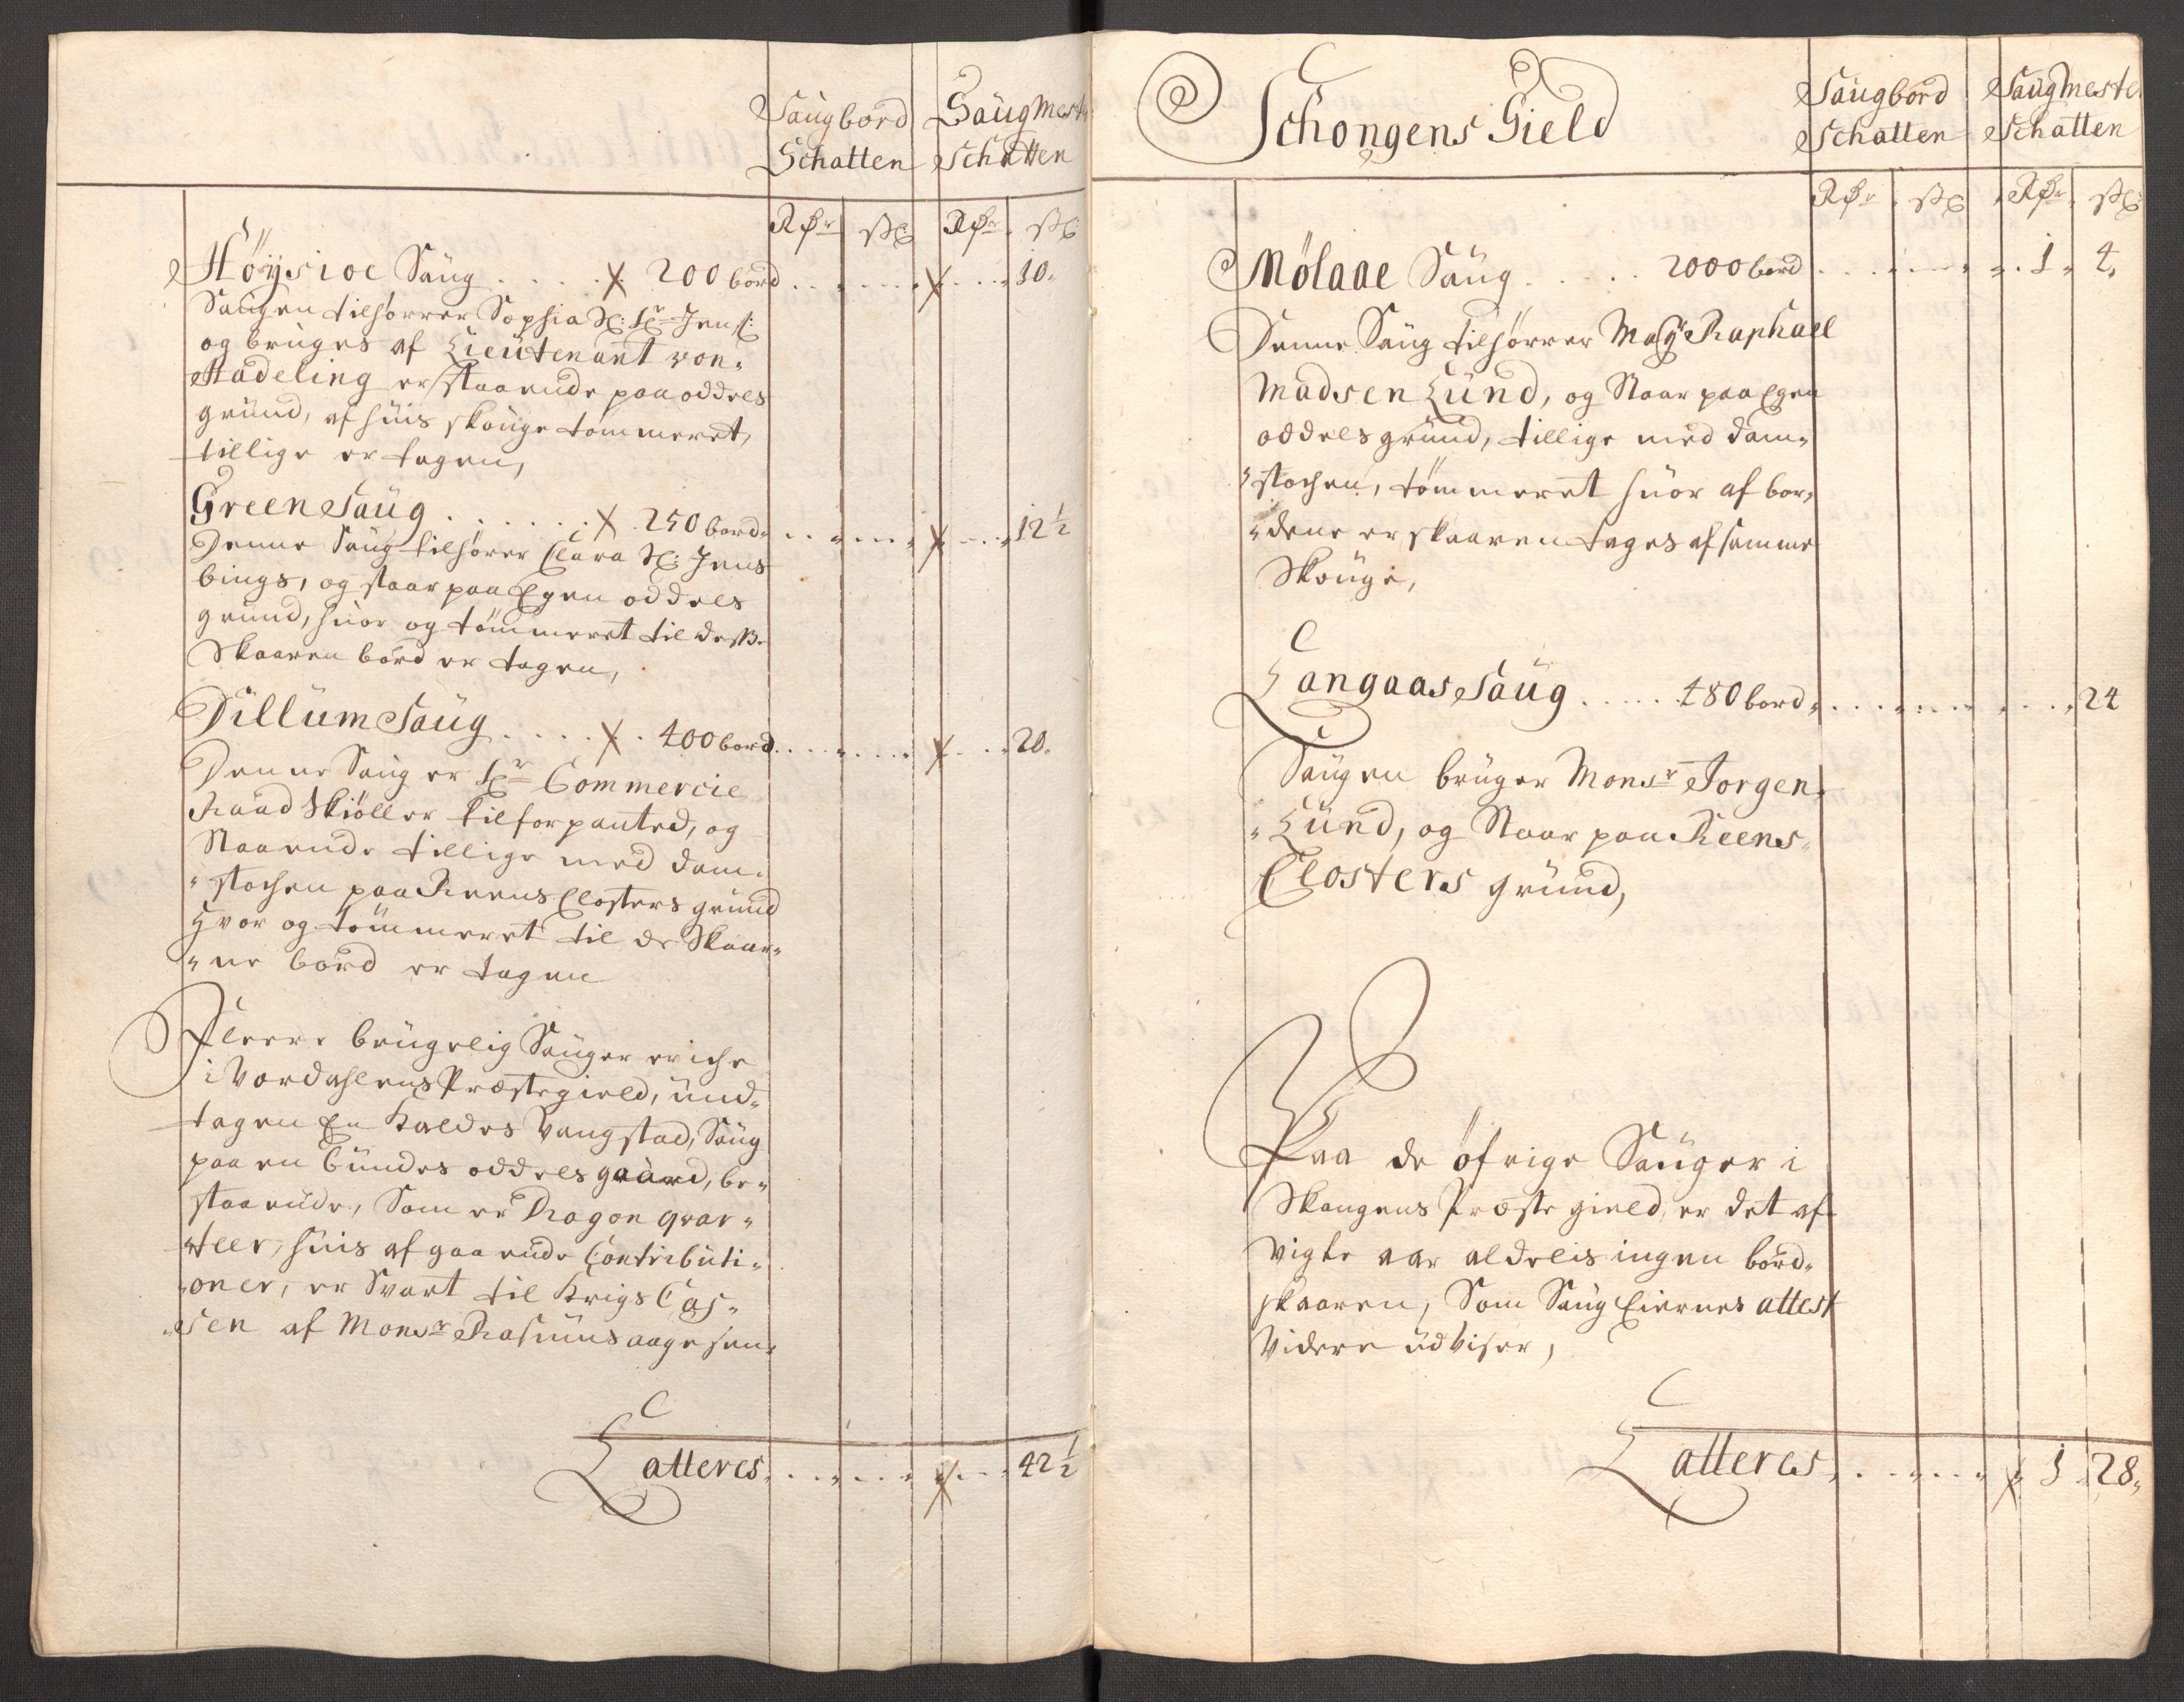 Saugbord Saugmest
Schatten Schatten
Rdr ß Rdr ß
Höysioe Saug . . . . . 200 bord . . . . 10
Saugen tilhørrer Sophia Sl: Hr Jens:
og bruges af Lieutenant von
Hadeling er staaende paa oddels
grund, af huis skouge tømmeret,
tillige er tagen,
Green Saug . . . . . . 250 bord . . . . 12½
Denne Saug tilhører Clara Sl: Jens
bings, og staar paa Egen oddels
grund, huor og tømmeret til desse
Skaaren bord er tagen,
Dillum Saug . . . . . 400 bord . . . . 20
Denne Saug er Hr Commercie
Raad Skiøller tilforpanted, og
Staaende tillige med dam-
stochen paa Reens Closters grund
Hvor og tømmeret til de Skaar-
ne bord er tagen
Fleere brugelig Sauger er iche
i Værdahlens Præstegield, und-
tagen En Kaldes Vangstad, Saug
paa en bundes oddels gaard, be-
staaende, Som er Dragon qvar-
teer, huis afgaaende Contributi-
oner, er Svart til Krigs Cas-
sen af Monsr Rasmus aagesen
Latteres . . . . 42½
Schongens Gield
Saugbord Saugmeste
Schatten Schatten
Rdr ß Rdr ß
Mölaae Saug . . . . 2000 bord . . . . 1 4
Denne Saug tilhørrer Mag Raphael
Madsen Lund, og Staar paa Egen
oddels grund, tillige med dam-
stochen, tømmeret huor af bor-
dene er skaaren tages af samme
Skouge,
Langaas Saug . . . . . 480 bord . . . . 24
Saugen bruger Monsr Jorgen
Lund, og Staar paa Reens
Closters grund,
Paa de øfrige Sauger i
Skongens Præste gield, er det af-
vigte aar aldelis ingen bord
skaaren, Som Saug Eiernes attest
Videre udviser,
Latteres . . . . 1 28